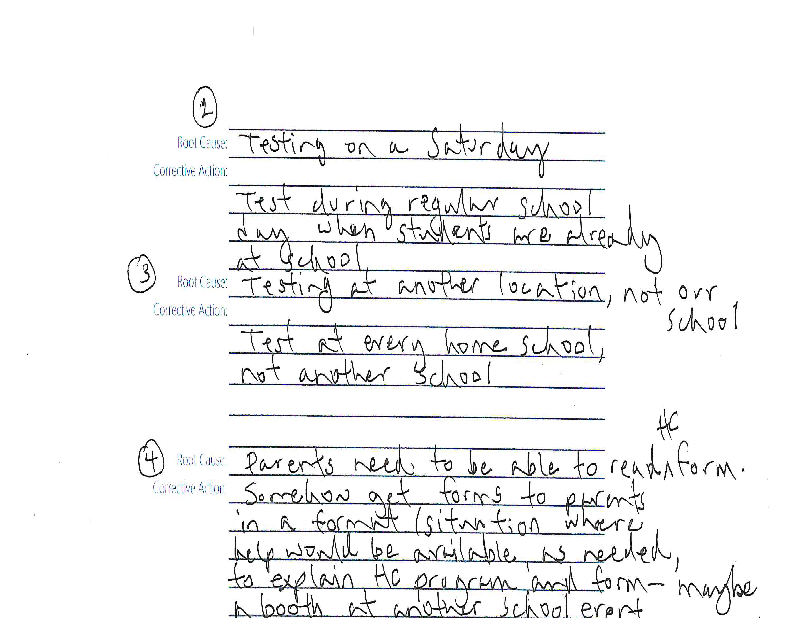 2
Root Cause: Testing on a Saturday
Corrective Action:
Test during regular school
day when students are already
at school
3
Root Cause: Testing at another location, not our
school
Corrective Action:
Test at every home school,
not another school
HC
4
Root Cause: Parents need to be able to read form.
Corrective Action: Somehow get forms to parents
in a format/situation where
help would be available as needed,
to explain HC program and form - maybe
a booth at another school event